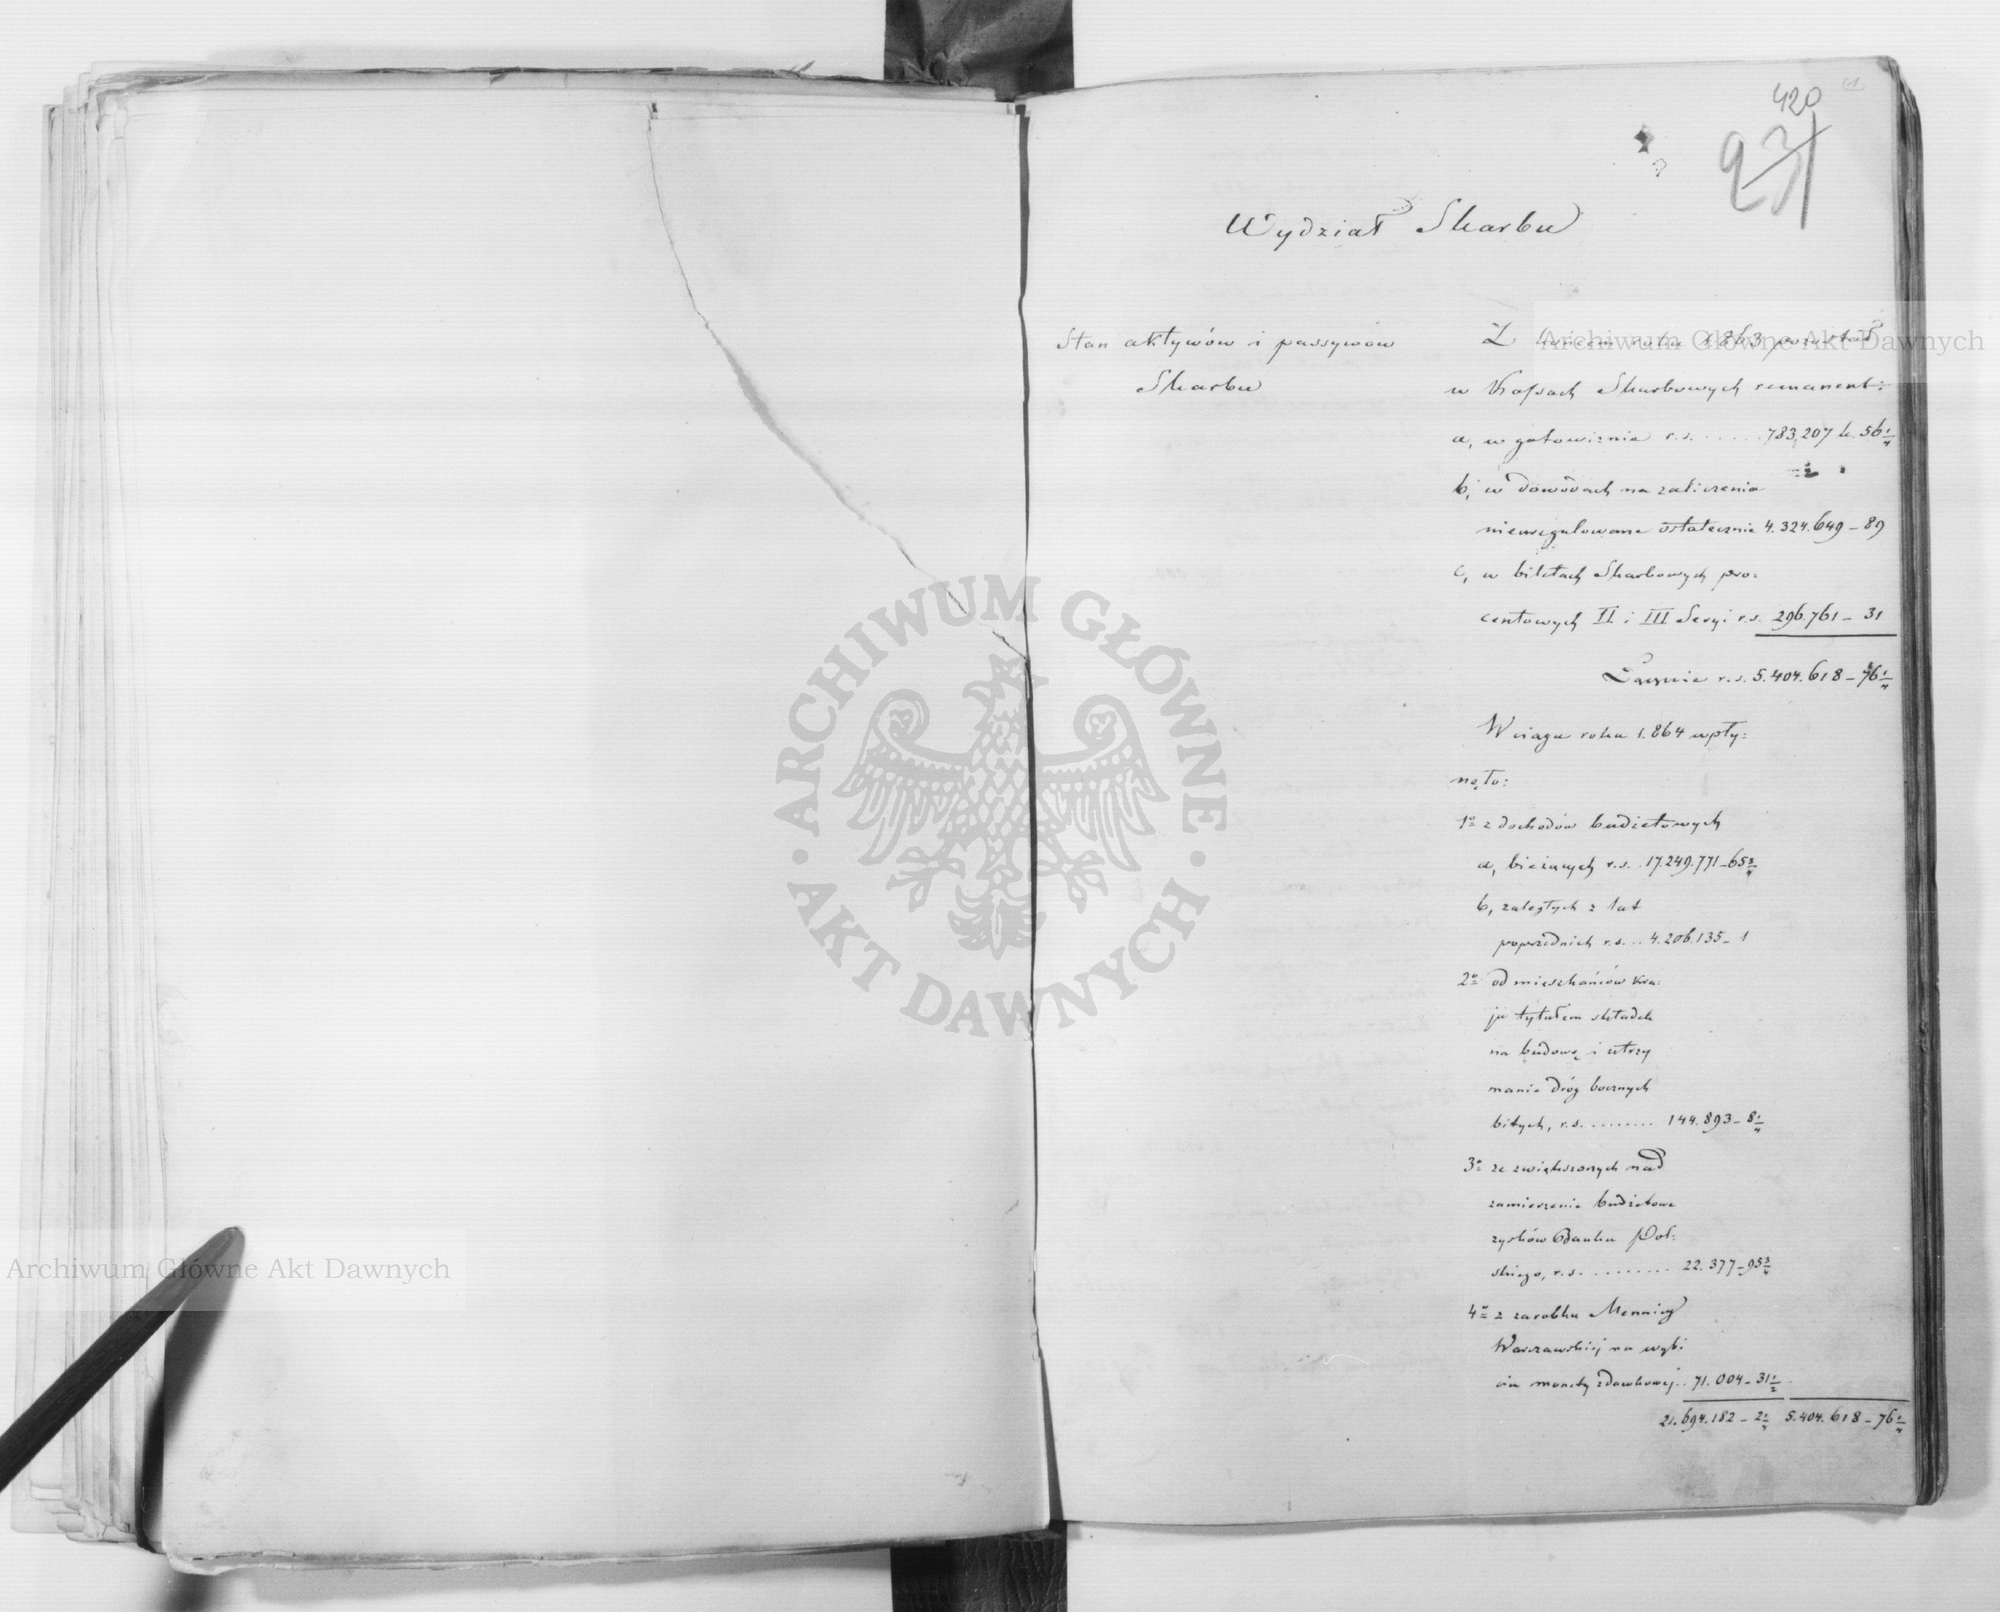 420
231
Wydział Skarbu
Stan aktywów i passywów
Skarbu
Z końcem roku 1863 pozostał
w Kassach Skarbowych remanent:
a, w gotowiznie r.s. ...... 783.207 k. 56 1/4
b, w dowodach na zaliczenia
nieuregulowane ostatecznie 4.324.649 – 89
c, w biletach Skarbowych pro:
centowych II i III Seryi r.s. 296.761 – 31
Łącznie r.s. 5.404.618 – 76 1/4
W ciągu roku 1.864 wpły:
nęło:
1o z dochodów budżetowych
a, bieżących r.s. .. 17.249.771 – 65 3/4
b, zaległych z lat
poprzednich r.s. ... 4.206.135 – 1
2o od mieszkańców kra:
ju tytułem składek
na budowę i utrzy
manie dróg bocznych
bitych, r.s. ......... 144.893 – 8 1/4
3o ze zwiększonych nad
zamierzenie budżetowe
zysków Banku Pol:
skiego, r.s. ......... 22.377 – 95 3/4
4o z zarobku Mennicy
Warszawskiej na wybi
ciu monety zdawkowej .. 71.004 – 31 1/2
21.694.182 – 2 1/4 5.404.618 – 76 1/4
Archiwum Główne Akt Dawnych
ARCHIWUM GŁÓWNE
· AKT DAWNYCH ·
Archiwum Główne Akt Dawnych